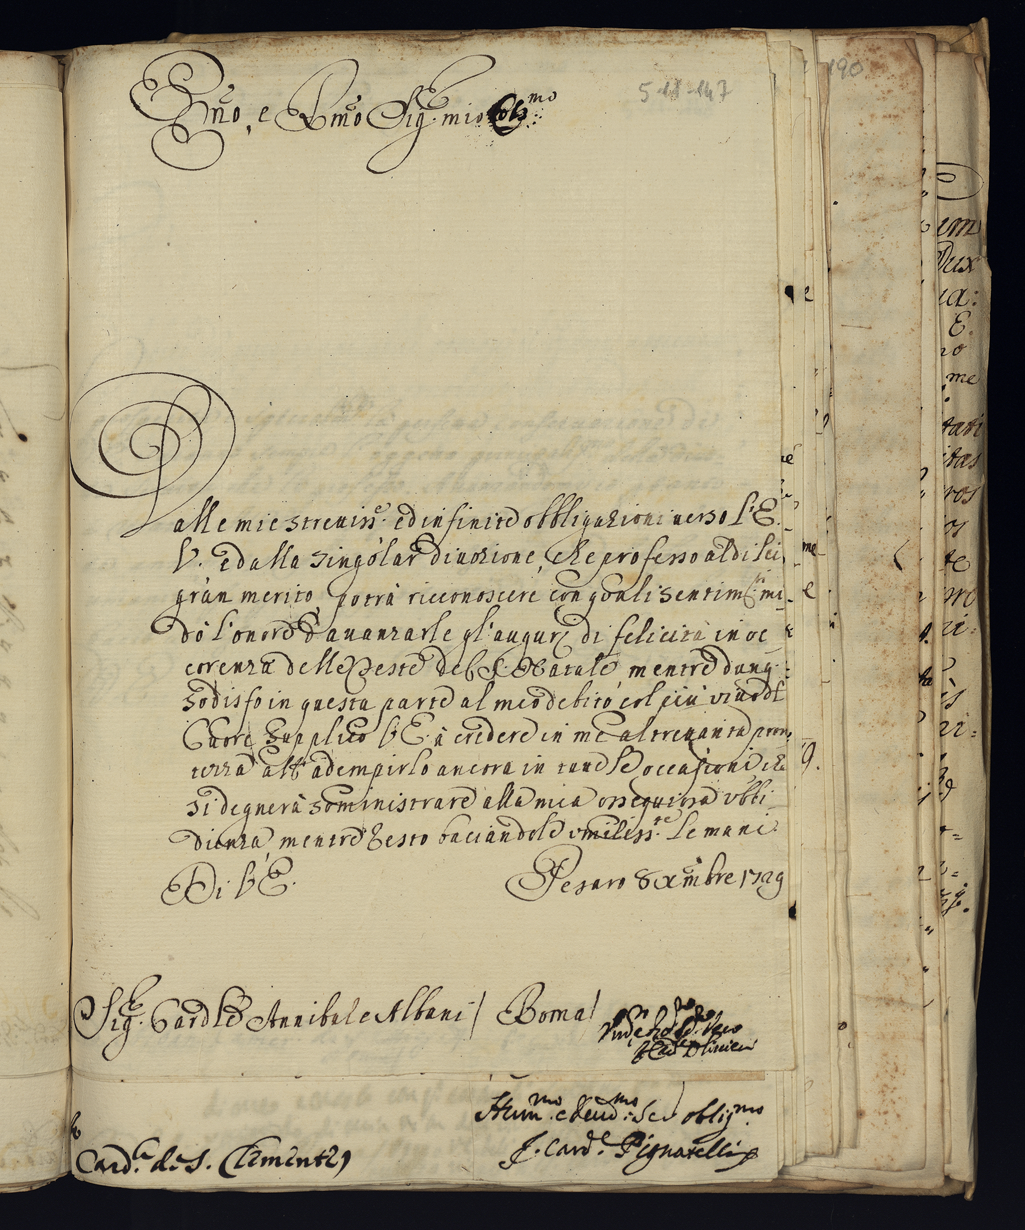 Emo, e Rmo Sig.r mio Col.mo
5-18-147
190
Dalle mie strettiss.e ed infinite obbligazioni verso l'E.
V. e dalla singolar divozione, che professo al di lei
gran merito potrà riconoscere con quali sentim.ti mi
dò l'onore d'avanzarle gl'augurj di felicità in oc
correnza delle Feste del S. Natale, mentre dunq.
sodisfo in questa parte al mio debito col più vivo del
Cuore supplico V.E. à credere in me altretanta pron
tezza all' adempirlo ancora in tutte le occasioni che
si degnerà somministrare alla mia ossequiosa ubbi
dienza mentre resto baciandole umiliss.te le mani
Di V.E.
Pesaro 8 Xmbre 1729
Sig.r Card.le Annibale Albani / Roma /
Hum.mo e deud.mo Ser. oblig.mo
Card.le di S. Clemente
F. Card.le Pignatelli